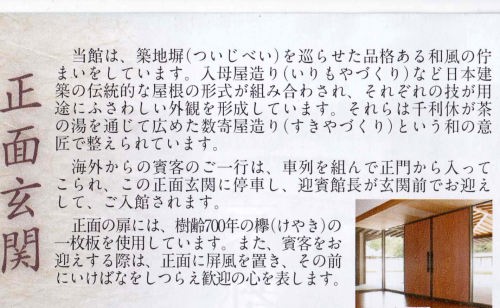 正面玄関
当館は、築地塀(ついじべい)を巡らせた品格ある和風の佇
まいをしています。入母屋造り(いりもやづくり)など日本建
築の伝統的な屋根の形式が組み合わされ、それぞれの技が用
途にふさわしい外観を形成しています。それらは千利休が茶
の湯を通じて広めた数寄屋造り(すきやづくり)という和の意
匠で整えられています。
海外からの賓客のご一行は、車列を組んで正門から入って
こられ、この正面玄関に停車し、迎賓館長が玄関前でお迎え
して、ご入館されます。
正面の扉には、樹齢700年の欅(けやき)の
一枚板を使用しています。また、賓客をお
迎えする際は、正面に屏風を置き、その前
にいけばなをしつらえ歓迎の心を表します。